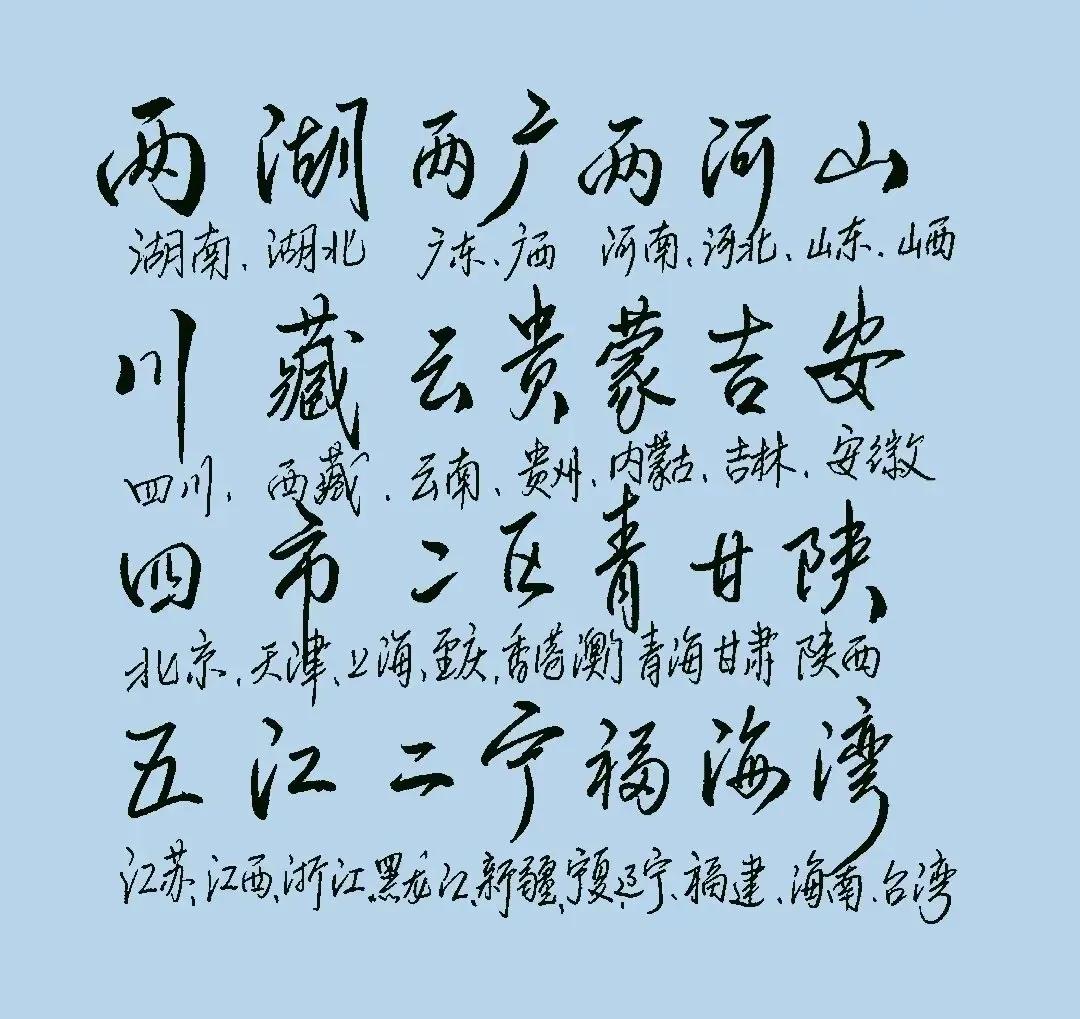 两湖两广两河山
湖南、湖北 广东、广西 河南、河北、山东、山西
川藏云贵蒙吉安
四川、西藏、云南、贵州、内蒙古、吉林、安徽
四市二区青甘陕
北京、天津、上海、重庆、香港澳门青海甘肃陕西
五江二宁福海湾
江苏、江西、浙江、黑龙江、新疆、宁夏、辽宁、福建、海南、台湾